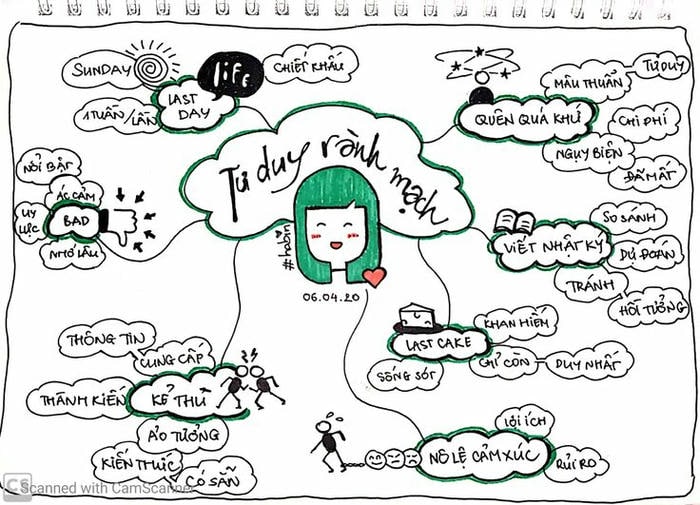 Tư duy rành mạch
#habin
06.04.20
SUNDAY
life
CHIẾT KHẤU
LAST
DAY
1 TUẦN/LẦN
NỔI BẬT
ÁC CẢM
BAD
UY
LỰC
NHỚ LÂU
THÔNG TIN
CUNG CẤP
THÀNH KIẾN
KẺ THÙ
ẢO TƯỞNG
KIẾN THỨC
CÓ SẴN
TƯ DUY
MÂU THUẪN
QUÊN QUÁ KHỨ
CHI PHÍ
NGUY BIỆN
ĐÃ MẤT
SO SÁNH
VIẾT NHẬT KÝ
DỰ ĐOÁN
TRÁNH
HỒI TƯỞNG
KHAN HIẾM
LAST CAKE
CHỈ CÒN
DUY NHẤT
SỐNG SÓT
LỢI ÍCH
NÔ LỆ CẢM XÚC
RỦI RO
CS Scanned with CamScanner